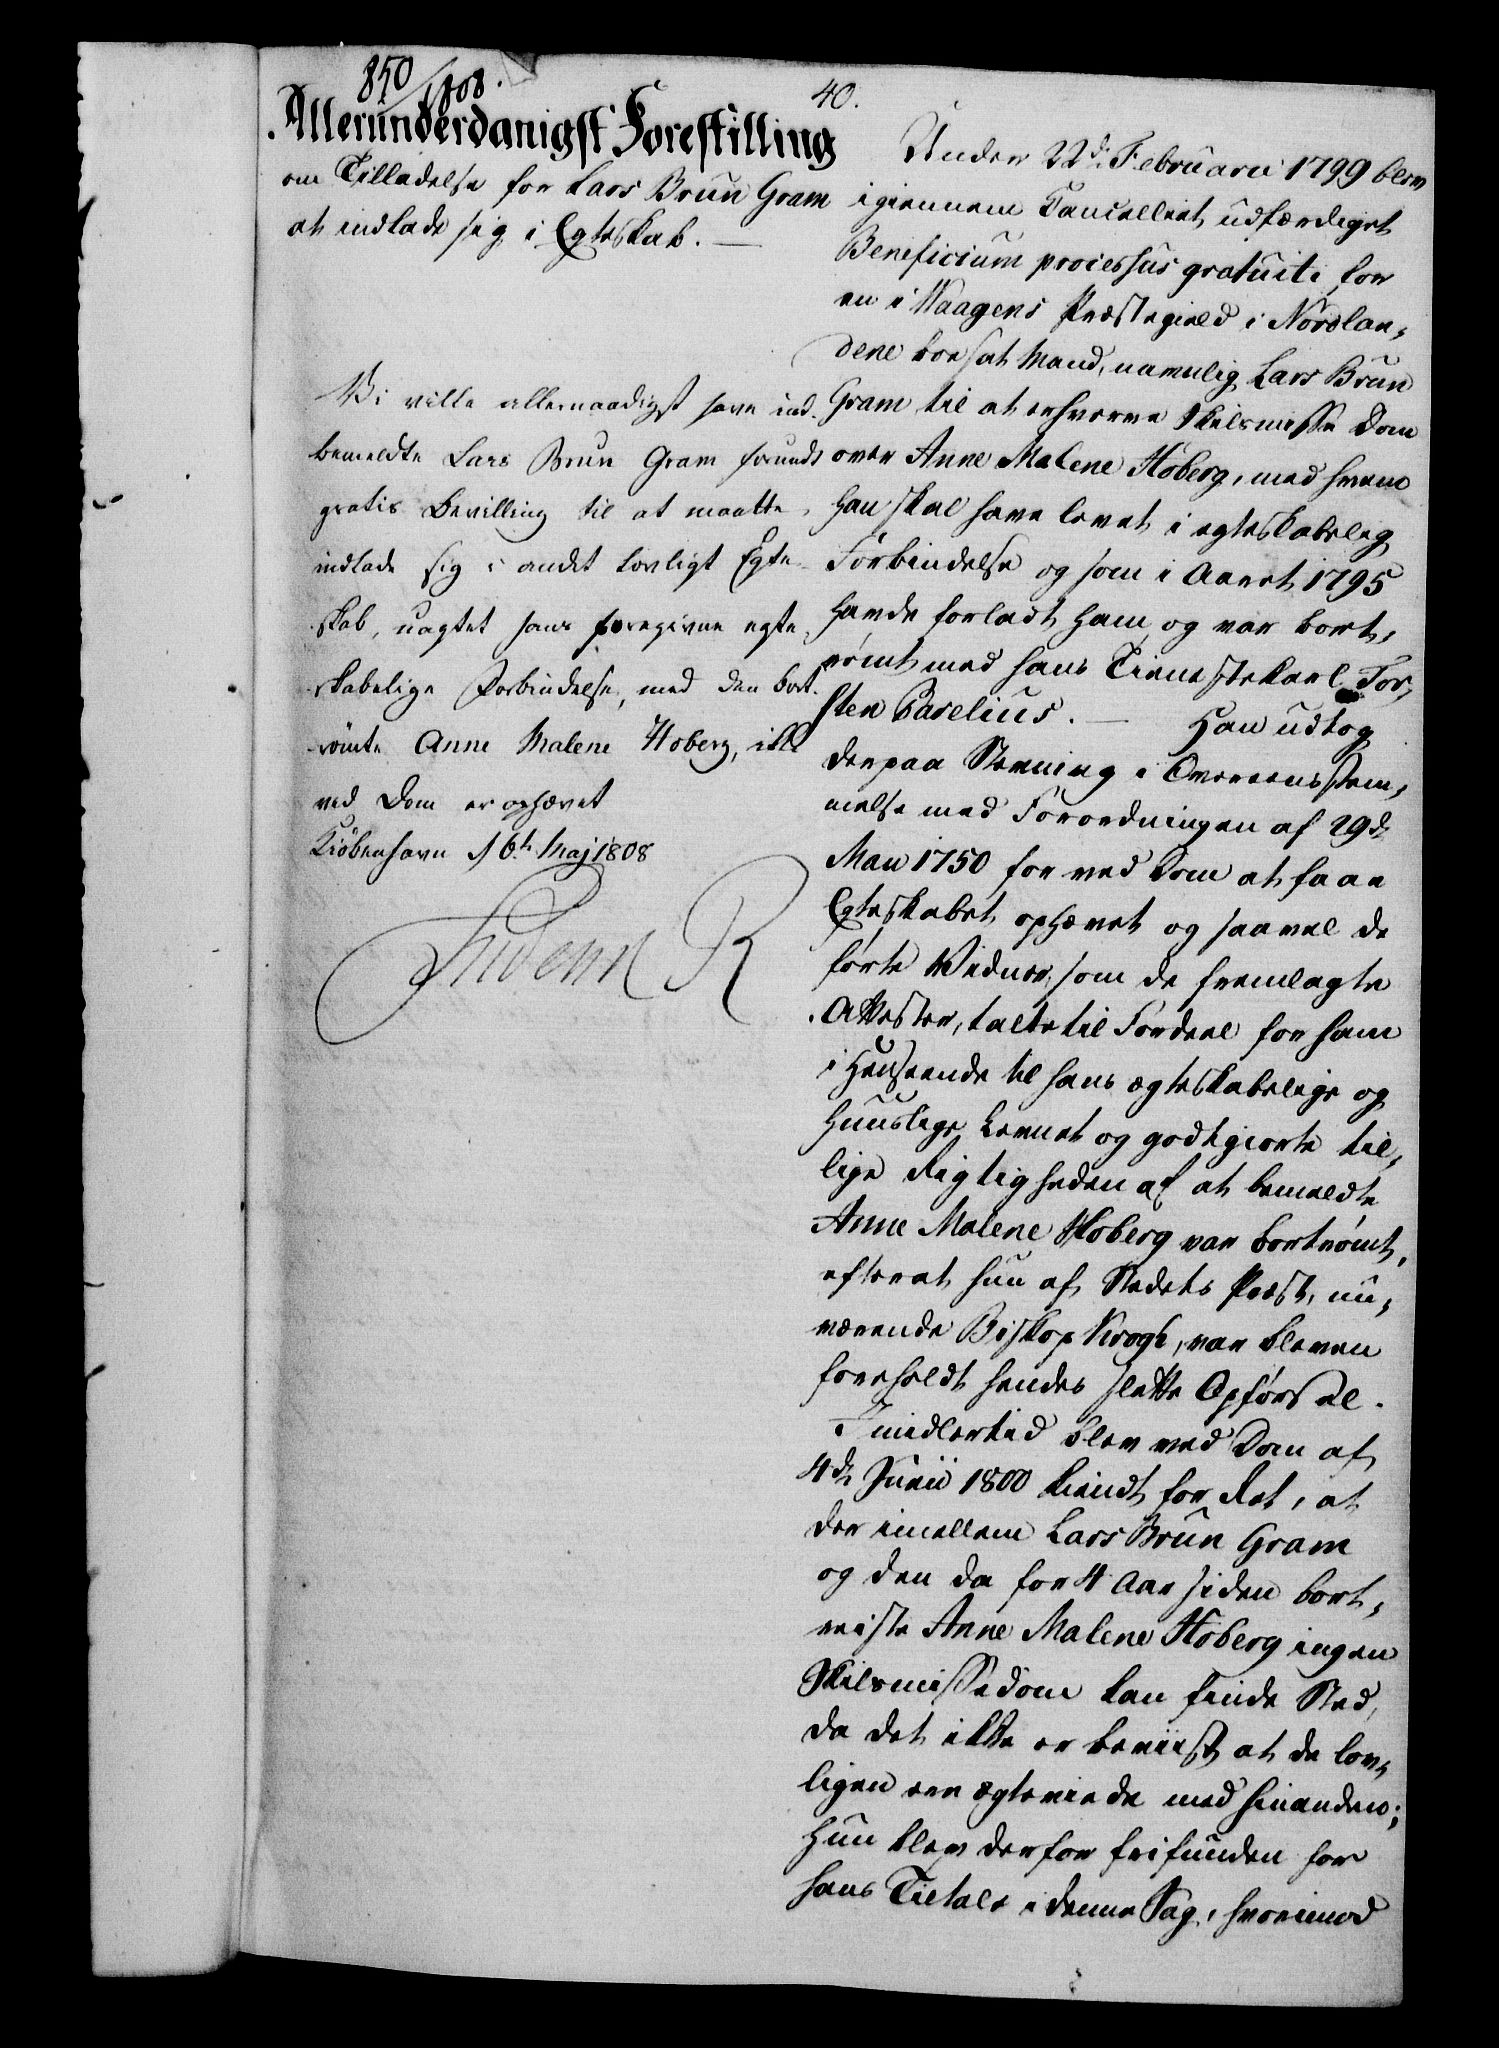 850/1808.
40.
Allerunderdanigst Forestilling
om Tilladelse for Lars Brun Gram
at indlade sig i Egteskab. —
Vi ville allernaadigst have ind-
bemeldte Lars Brun Gram forundt
gratis Bevilling til at maatte
indlade sig i andet lovligt Egte-
skab, uagtet hans foregivne egte-
skabelige Forbindelse, med den bort-
römte Anne Malene Hoberg, ikke
ved Dom er ophævet
Kiöbenhavn d 6te Maj 1808
Friderich R
Under 22de Februarii 1799 blev
igiennem Cancelliet udfærdiget
Beneficium processus gratuiti for
en i Waagens Præstegield i Nordlan-
dene boesat Mand, navnlig Lars Brun
Gram til at erhverve Skilsmisse Dom
over Anne Malene Hoberg, med hvem
han skal have levet i egteskabelig
Forbindelse og som i Aaret 1795
havde forladt ham og var bort-
römt med hans Tienestekarl Tor-
sten Barelius. — Han udtog
derpaa Stevning i Overeensstem-
melse med Forordningen af 29de
Mau 1750 for ved Dom at faae
Egteskabet ophævet og saavel de
förte Vidner, som de fremlagte
Attester, talte til Fordeel for ham
i Henseende til hans ægteskabelige og
huuslige Levnet og godtgiorte til-
lige Rigtigheden af at bemeldte
Anne Malene Hoberg var bortrömt,
efterat hun af Stedets Præst, nu-
værende Biskop Krogh, var bleven
foreholdt hendes slette Opförsel.
Imidlertid blev ved Dom af
4de Junii 1800 kiendt for Ret, at
der imellem Lars Brun Gram
og den da for 4 Aar siden bort-
reiste Anne Malene Hoberg ingen
Skilsmissedom kan finde Sted,
da det ikke er beviist at de lov-
ligen ere ægteviede med hinanden;
hun blev derfor frifunden for
hans Tiltale i denne Sag, hvorimod